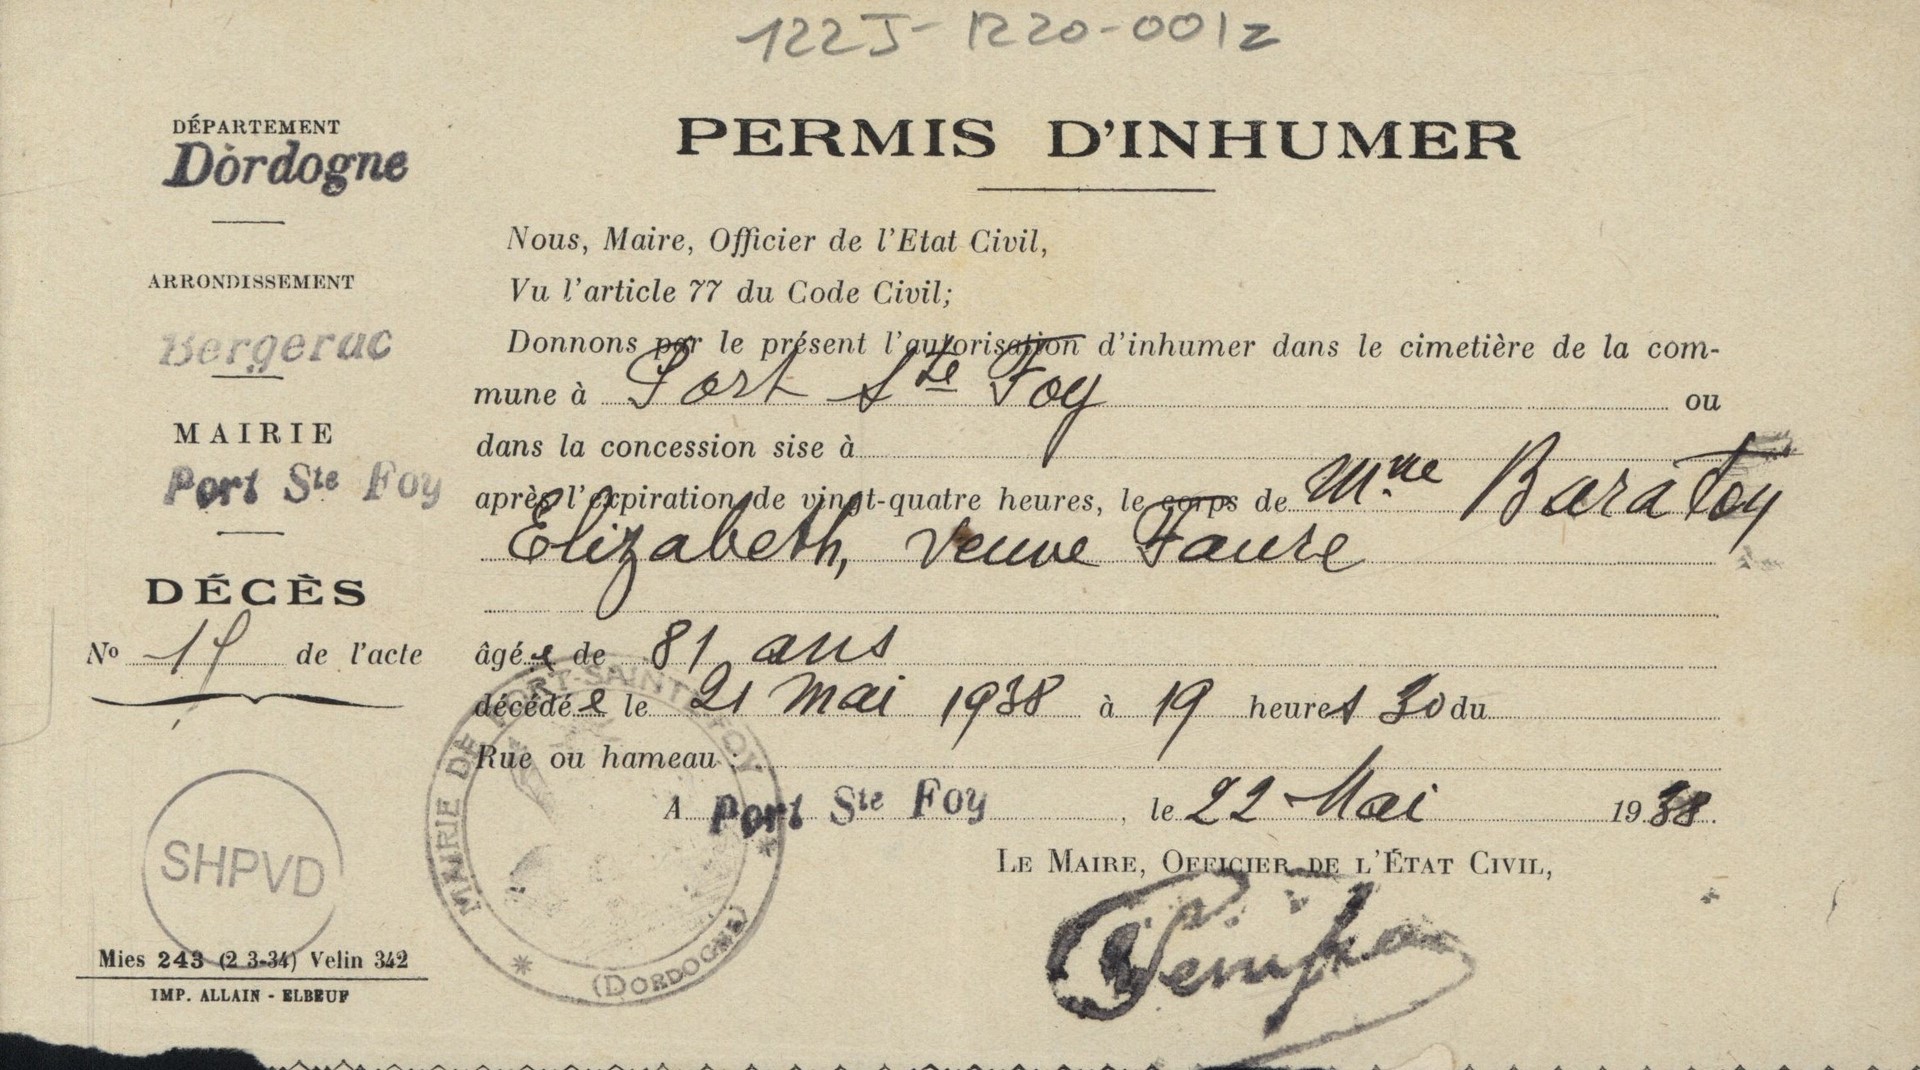 122J-1220-0012
DÉPARTEMENT
Dordogne
ARRONDISSEMENT
Bergerac
MAIRIE
Port Ste Foy
DÉCÈS
No de l'acte
SHPVD
Mies 243 (2 3-34) Velin 342
IMP. ALLAIN - ELBEUF
PERMIS D'INHUMER
Nous, Maire, Officier de l'Etat Civil,
Vu l'article 77 du Code Civil;
Donnons par le présent l'autorisation d'inhumer dans le cimetière de la com-
mune à Port Ste Foy ou
dans la concession sise à
après l'expiration de vingt-quatre heures, le corps de Mme Baratoy
Elizabeth, veuve Faure
âgée de 81 ans
décédée le 21 mai 1938 à 19 heures 30 du
Rue ou hameau :
A Port Ste Foy, le 22 Mai 1938.
LE MAIRE, OFFICIER DE L'ÉTAT CIVIL,
MAIRIE DE PORT-SAINTE-FOY
(DORDOGNE)